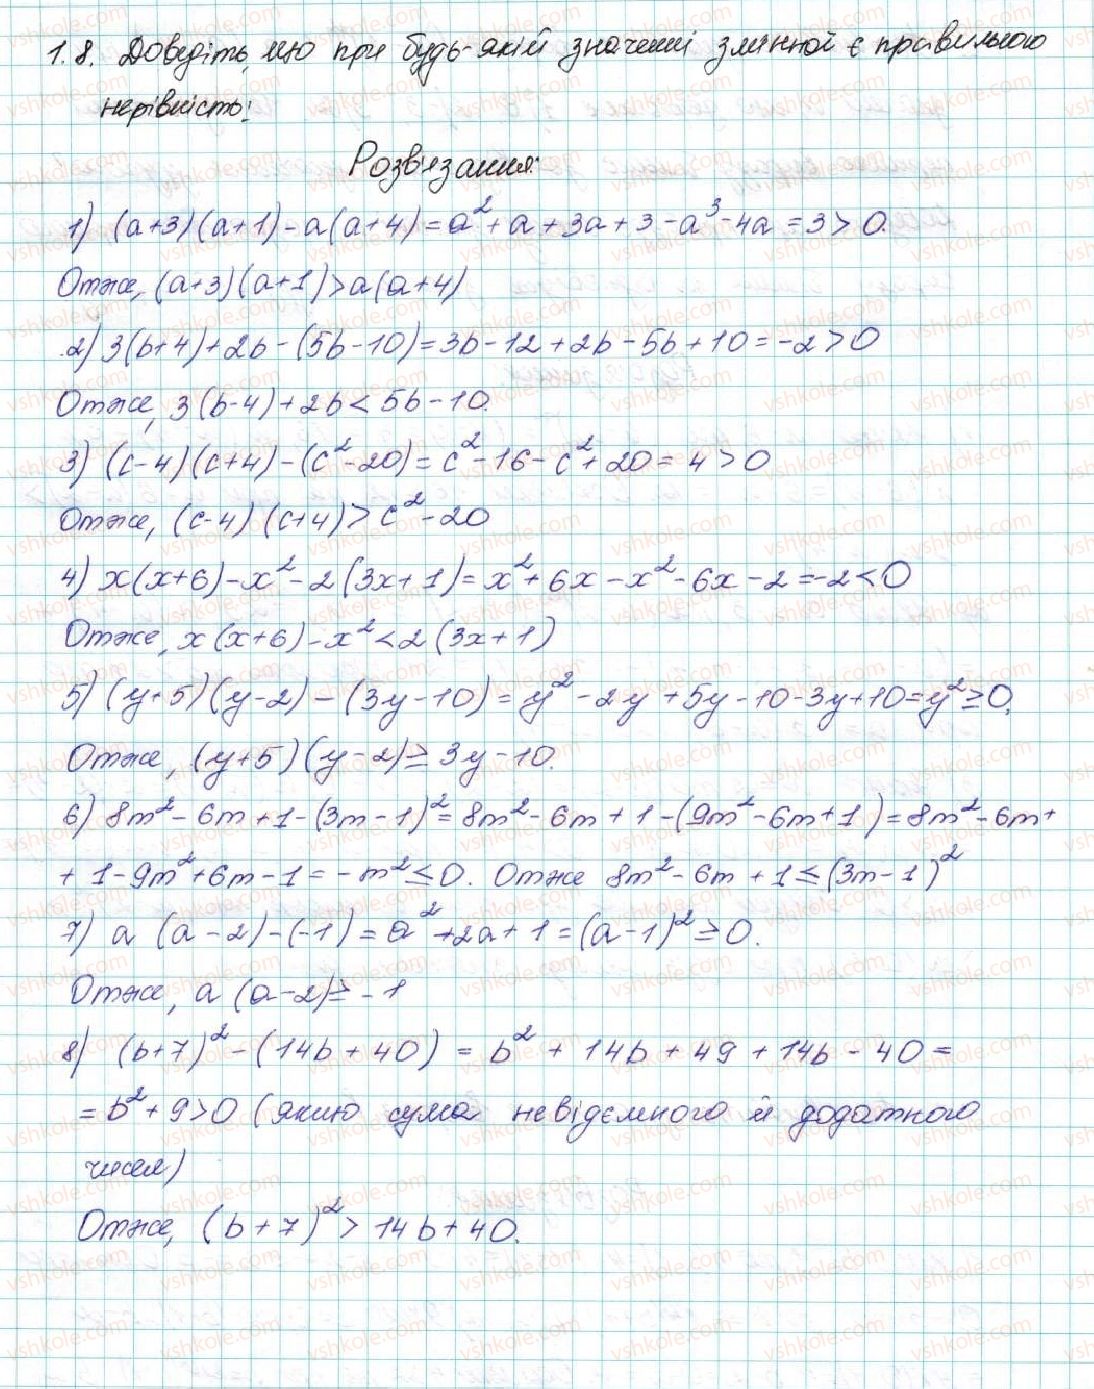 1.8. Доведіть, що при будь-якій значенні змінної є правильною
нерівність:
Розв'язання:
1) (a+3)(a+1)-a(a+4)=a²+a+3a+3-a³-4a=3>0.
Отже, (a+3)(a+1)>a(a+4)
2) 3(b+4)+2b-(5b-10)=3b-12+2b-5b+10=-2>0
Отже, 3(b-4)+2b<5b-10.
3) (c-4)(c+4)-(c²-20)=c²-16-c²+20=4>0
Отже, (c-4)(c+4)>c²-20
4) x(x+6)-x²-2(3x+1)=x²+6x-x²-6x-2=-2<0
Отже, x(x+6)-x²<2(3x+1)
5) (y+5)(y-2)-(3y-10)=y²-2y+5y-10-3y+10=y²≥0,
Отже, (y+5)(y-2)≥3y-10.
6) 8m²-6m+1-(3m-1)²=8m²-6m+1-(9m²-6m+1)=8m²-6m+
+1-9m²+6m-1=-m²≤0. Отже 8m²-6m+1≤(3m-1)²
7) a(a-2)-(-1)=a²+2a+1=(a-1)²≥0.
Отже, a(a-2)≥-1
8) (b+7)²-(14b+40)=b²+14b+49+14b-40=
=b²+9>0 (якию сума невідємного й додатного
чисел)
Отже, (b+7)²>14b+40.